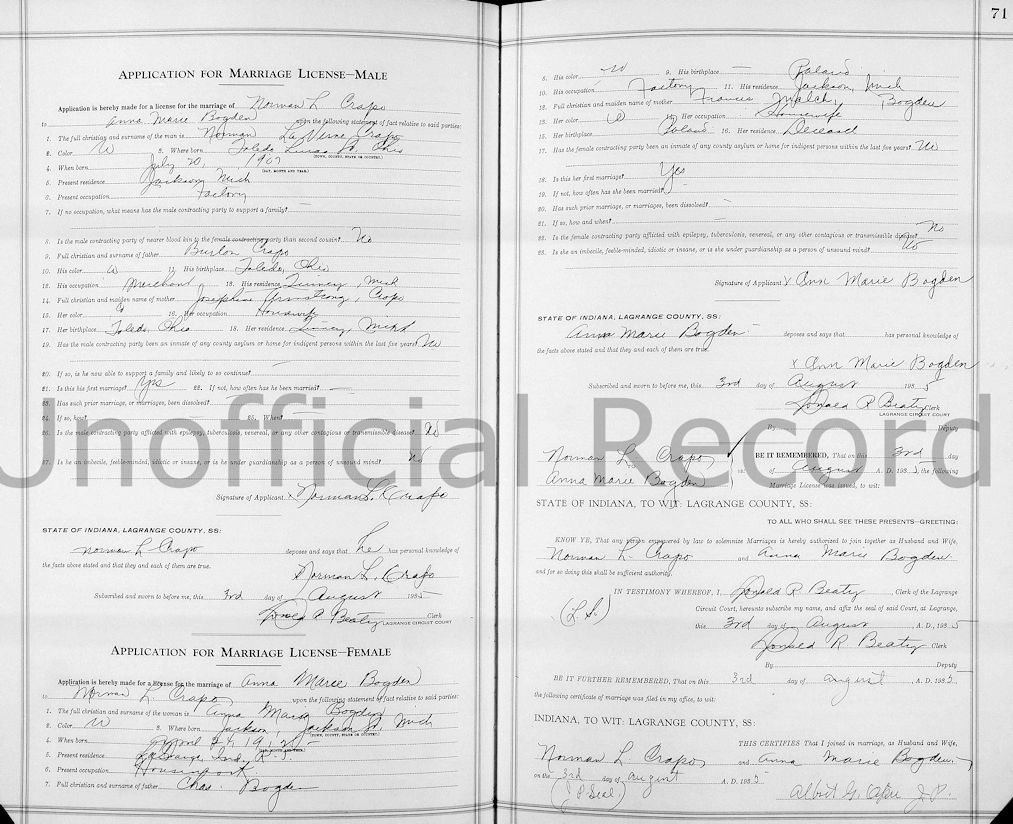 71
APPLICATION FOR MARRIAGE LICENSE—MALE
Application is hereby made for a license for the marriage of Norman L Crapo
to Anna Marie Bogden upon the following statement of fact relative to said parties:
1. The full christian and surname of the man is Norman LaVerne Crapo
2. Color W 3. Where born Toledo Lucas Co. Ohio
(TOWN, COUNTY, STATE OR COUNTRY.)
4. When born July 20, 1907
(DAY, MONTH AND YEAR.)
5. Present residence Jackson Mich
6. Present occupation Factory
7. If no occupation, what means has the male contracting party to support a family?
8. Is the male contracting party of nearer blood kin to the female contracting party than second cousin? No
9. Full christian and surname of father Burlon Crapo
10. His color W 11. His birthplace Toledo, Ohio
12. His occupation Merchant 13. His residence Mich
14. Full christian and maiden name of mother Josephine Armstrong, Crapo
15. Her color 16. Her occupation Housewife
17. Her birthplace Toledo Ohio 18. Her residence Mich
19. Has the male contracting party been an inmate of any county asylum or home for indigent persons within the last five years? No
20. If so, is he now able to support a family and likely to so continue?
21. Is this his first marriage? Yes 22. If not, how often has he been married?
23. Has such prior marriage, or marriages, been dissolved?
24. If so, how? 25. When?
26. Is the male contracting party afflicted with epilepsy, tuberculosis, venereal, or any other contagious or transmissible disease? No
27. Is he an imbecile, feeble-minded, idiotic or insane, or is he under guardianship as a person of unsound mind? No
Signature of Applicant x Norman L. Crapo
STATE OF INDIANA, LAGRANGE COUNTY, SS:
Norman L Crapo deposes and says that he has personal knowledge of
the facts above stated and that they and each of them are true.
Norman L. Crapo
Subscribed and sworn to before me, this 3rd day of August 1935
Donald R Beaty Clerk
LAGRANGE CIRCUIT COURT
APPLICATION FOR MARRIAGE LICENSE—FEMALE
Application is hereby made for a license for the marriage of Anna Marie Bogden
to Norman L Crapo upon the following statement of fact relative to said parties:
1. The full christian and surname of the woman is Anna Marie Bogden
2. Color W 3. Where born Jackson, Jackson Co. Mich
(TOWN, COUNTY, STATE OR COUNTRY.)
4. When born April
(DAY, MONTH AND YEAR.)
5. Present residence LaGrange Ind.
6. Present occupation Housework
7. Full christian and surname of father Chas. Bogden
8. His color W 9. His birthplace Poland
10. His occupation Factory 11. His residence Jackson, Mich
12. Full christian and maiden name of mother Francis Bogden
13. Her color W 14. Her occupation Housewife
15. Her birthplace Poland 16. Her residence Deseased
17. Has the female contracting party been an inmate of any county asylum or home for indigent persons within the last five years? No
18. Is this her first marriage? Yes
19. If not, how often has she been married?
20. Has such prior marriage, or marriages, been dissolved?
21. If so, how and when?
22. Is the female contracting party afflicted with epilepsy, tuberculosis, venereal, or any other contagious or transmissible disease? No
23. Is she an imbecile, feeble-minded, idiotic or insane, or is she under guardianship as a person of unsound mind? No
Signature of Applicant x Ann Marie Bogden
STATE OF INDIANA, LAGRANGE COUNTY, SS:
Anna Marie Bogden deposes and says that has personal knowledge of
the facts above stated and that they and each of them are true.
x Ann Marie Bogden
Subscribed and sworn to before me, this 3rd day of August 1935
Donald R Beaty Clerk
LAGRANGE CIRCUIT COURT
By Deputy
Unofficial Record
Norman L. Crapo
TO
Anna Marie Bogden
BE IT REMEMBERED, That on this 3rd day
of August A. D. 1935, the following
Marriage License was issued, to wit:
STATE OF INDIANA, TO WIT: LAGRANGE COUNTY, SS:
TO ALL WHO SHALL SEE THESE PRESENTS—GREETING:
KNOW YE, That any person empowered by law to solemnize Marriages is hereby authorized to join together as Husband and Wife,
Norman L. Crapo and Anna Marie Bogden
and for so doing this shall be sufficient authority.
IN TESTIMONY WHEREOF, I, Donald R Beaty Clerk of the Lagrange
(L.S.)
Circuit Court, hereunto subscribe my name, and affix the seal of said Court, at Lagrange,
this 3rd day of August A. D., 1935
Donald R. Beaty Clerk
By Deputy
BE IT FURTHER REMEMBERED, That on this 3rd day of August A. D. 1935,
the following certificate of marriage was filed in my office, to wit:
INDIANA, TO WIT: LAGRANGE COUNTY, SS:
THIS CERTIFIES That I joined in marriage, as Husband and Wife,
Norman L Crapo and Anna Marie Bogden
on the 3rd day of August A. D. 1935
(J P Seal)
Albert G. J.P.